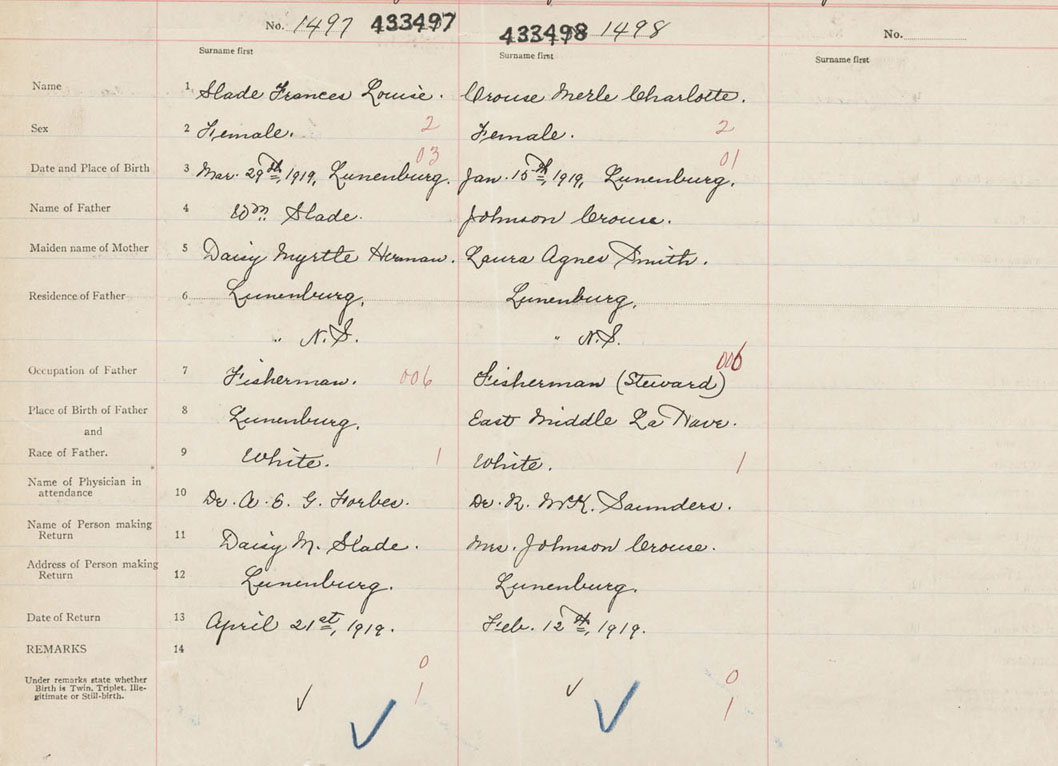 No. 1497 433497 433498 1498 No.
Surname first Surname first Surname first
Name 1 Slade Frances Louise. Crouse Merle Charlotte.
Sex 2 Female. 2 Female. 2
03 01
Date and Place of Birth 3 Mar. 29th, 1919, Lunenburg. Jan. 15th, 1919, Lunenburg.
Name of Father 4 Wm. Slade. Johnson Crouse.
Maiden name of Mother 5 Daisy Myrtle Herman. Laura Agnes Smith.
Residence of Father 6 Lunenburg, Lunenburg,
" N.S. " N.S.
006
Occupation of Father 7 Fisherman. 006 Fisherman (Steward)
Place of Birth of Father 8 Lunenburg. East Middle La Have.
and
Race of Father. 9 White. 1 White. 1
Name of Physician in
attendance 10 Dr. A. E. G. Forbes. Dr. R. McK. Saunders.
Name of Person making
Return 11 Daisy M. Slade. Mrs. Johnson Crouse.
Address of Person making
Return 12 Lunenburg. Lunenburg.
Date of Return 13 April 21st, 1919. Feb. 12th, 1919.
REMARKS 14
0 0
Under remarks state whether
Birth is Twin, Triplet, Ille-
gitimate or Still-birth.
1 1